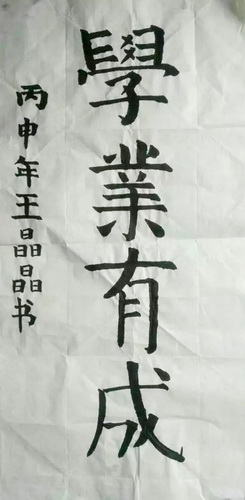 學業有成
丙申年王晶晶书